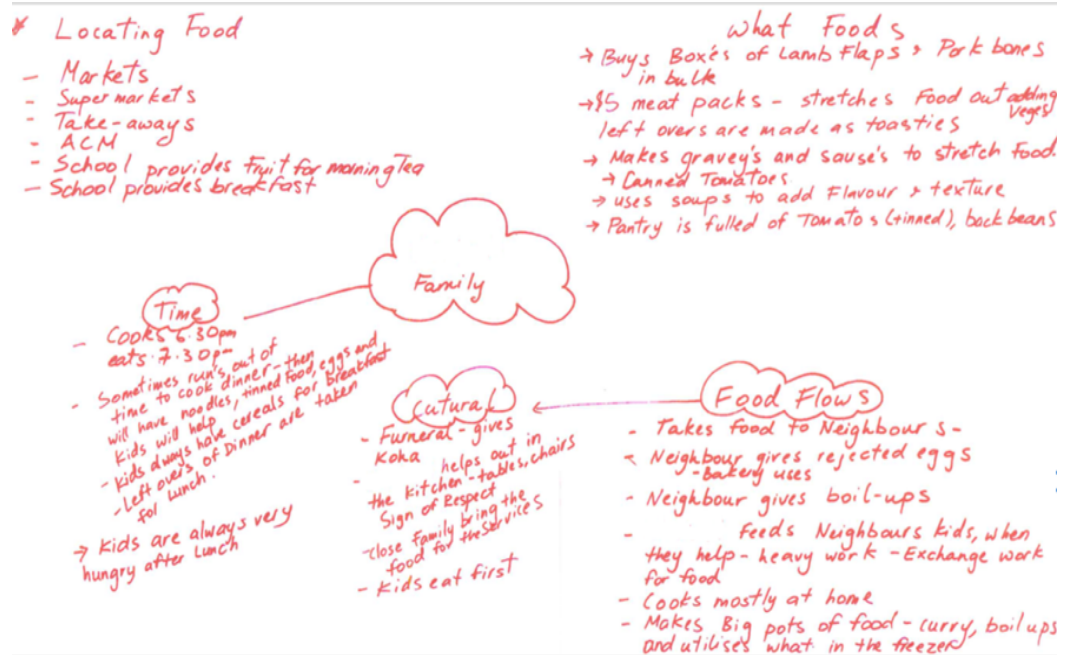 * Locating Food
- Markets
- Supermarkets
- Take-aways
- ACM
- School provides Fruit for morning Tea
- School provides breakfast
What Foods
→ Buys Boxes of Lamb Flaps & Pork bones
in bulk
→ $5 meat packs - stretches Food out adding Veges
left overs are made as toasties
→ Makes gravey's and souse's to stretch Food.
→ Canned Tomatoes
→ uses soups to add Flavour & texture
→ Pantry is fulled of Tomatos (tinned), back beans
Family
Time
- Cooks 6.30pm
eats 7.30pm
- Sometimes run's out of
time to cook dinner - then
will have noodles, tinned Food, eggs and
Kids will help
- Kids always have cereals for breakfast
- Left overs of Dinner are taken
fol Lunch.
→ Kids are always very
hungry after Lunch
Cutural
- Furneral - gives
Koha
- helps out in
the kitchen - tables, chairs
Sign of Respect
- close Family bring the
food for the services
- Kids eat first
Food Flows
- Takes food to Neighbours -
- Neighbour gives rejected eggs
- Bakery uses
- Neighbour gives boil-ups
- feeds Neighbours kids, when
they help - heavy work - Exchange work
for food
- Cooks mostly at home
- Makes Big pots of food - curry, boil ups
and utilises what in the freezer